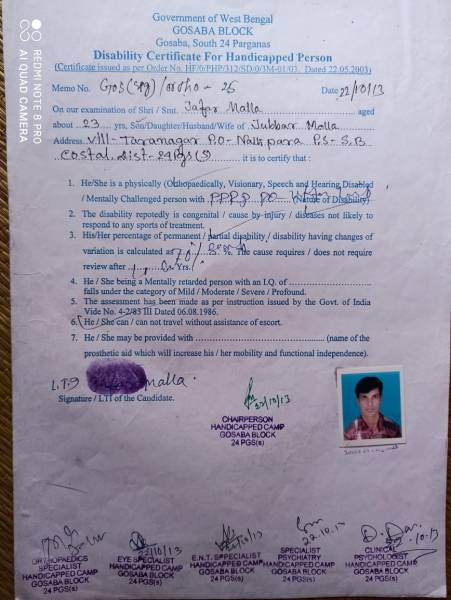 Government of West Bengal
GOSABA BLOCK
Gosaba, South 24 Parganas
Disability Certificate For Handicapped Person
(Certificate issued as per Order No. HF/0/PHP/312/SD/0/3M-01/03. Dated 22.05.2003)
Memo No. Gos(spg)/ortho - 26 Date 22/10/13
On our examination of Shri / Smt. Jafar Malla aged
about 23 yrs, Son/Daughter/Husband/Wife of Jubbar Molla
Address Vill- Taranagar P.O- Nalpara P.S- S.B
Costal, dist- 24 Pgs (S) it is to certify that :
1. He/She is a physically (Othopaedically, Visionary, Speech and Hearing Disabled
/ Mentally Challenged person with PPRP (Nature of Disability)
2. The disability repotedly is congenital / cause by injury / diseases not likely to
respond to any sports of treatment.
3. His/Her percentage of permanent / partial disability / disability having changes of
variation is calculated as 70% The cause requires / does not require
review after Yrs.
4. He / She being a Mentally retarded person with an I.Q. of
falls under the category of Mild / Moderate / Severe / Profound.
5. The assessment has been made as per instruction issued by the Govt. of India
Vide No. 4-2/83 III Dated 06.08.1986.
6. He / She can / can not travel without assistance of escort.
7. He / She may be provided with (name of the
prosthetic aid which will increase his / her mobility and functional independence).
Malla.
Signature / LTI of the Candidate.
22/10/13
CHAIRPERSON
HANDICAPPED CAMP
GOSABA BLOCK
24 PGS(s)
ORTHOPAEDICS
SPECIALIST
HANDICAPPED CAMP
GOSABA BLOCK
24 PGS(s)
22/10/13
EYE SPECIALIST
HANDICAPPED CAMP
GOSABA BLOCK
24 PGS(s)
E.N.T. SPECIALIST
HANDICAPPED CAMP
GOSABA BLOCK
24 PGS(s)
22.10.13
SPECIALIST
PSYCHIATRY
HANDICAPPED CAMP
GOSABA BLOCK
24 PGS(s)
CLINICAL
PSYCHOLOGIST
HANDICAPPED CAMP
GOSABA BLOCK
24 PGS(s)
REDMI NOTE 8 PRO
AI QUAD CAMERA